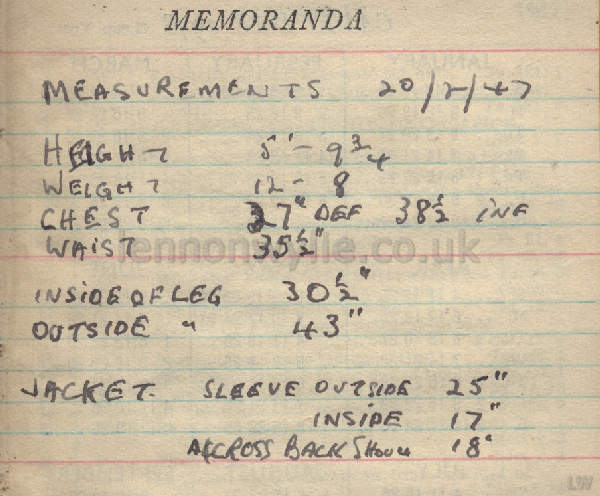 MEMORANDA
MEASUREMENTS 20/2/47
HEIGHT 5' - 9 3/4
WEIGHT 12 - 8
CHEST 37" DEF 38 1/2 INF
WAIST 35 1/2"
lennonwylie.co.uk
INSIDE OF LEG 30 1/2"
OUTSIDE " 43"
JACKET. SLEEVE OUTSIDE 25"
INSIDE 17"
ACROSS BACK 18"
LW